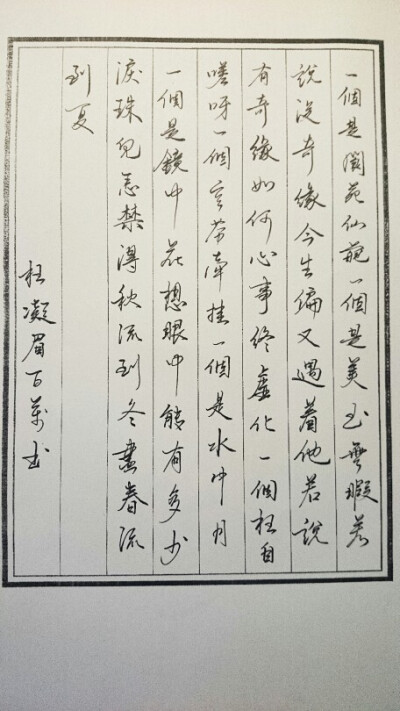 一個是閬苑仙葩一個是美玉無瑕若
說没奇緣今生偏又遇着他若說
有奇緣如何心事終虛化一個枉自
嗟呀一個空勞牽挂一個是水中月
一個是鏡中花想眼中能有多少
淚珠兒怎禁得秋流到冬盡春流
到夏
枉凝眉百萬書